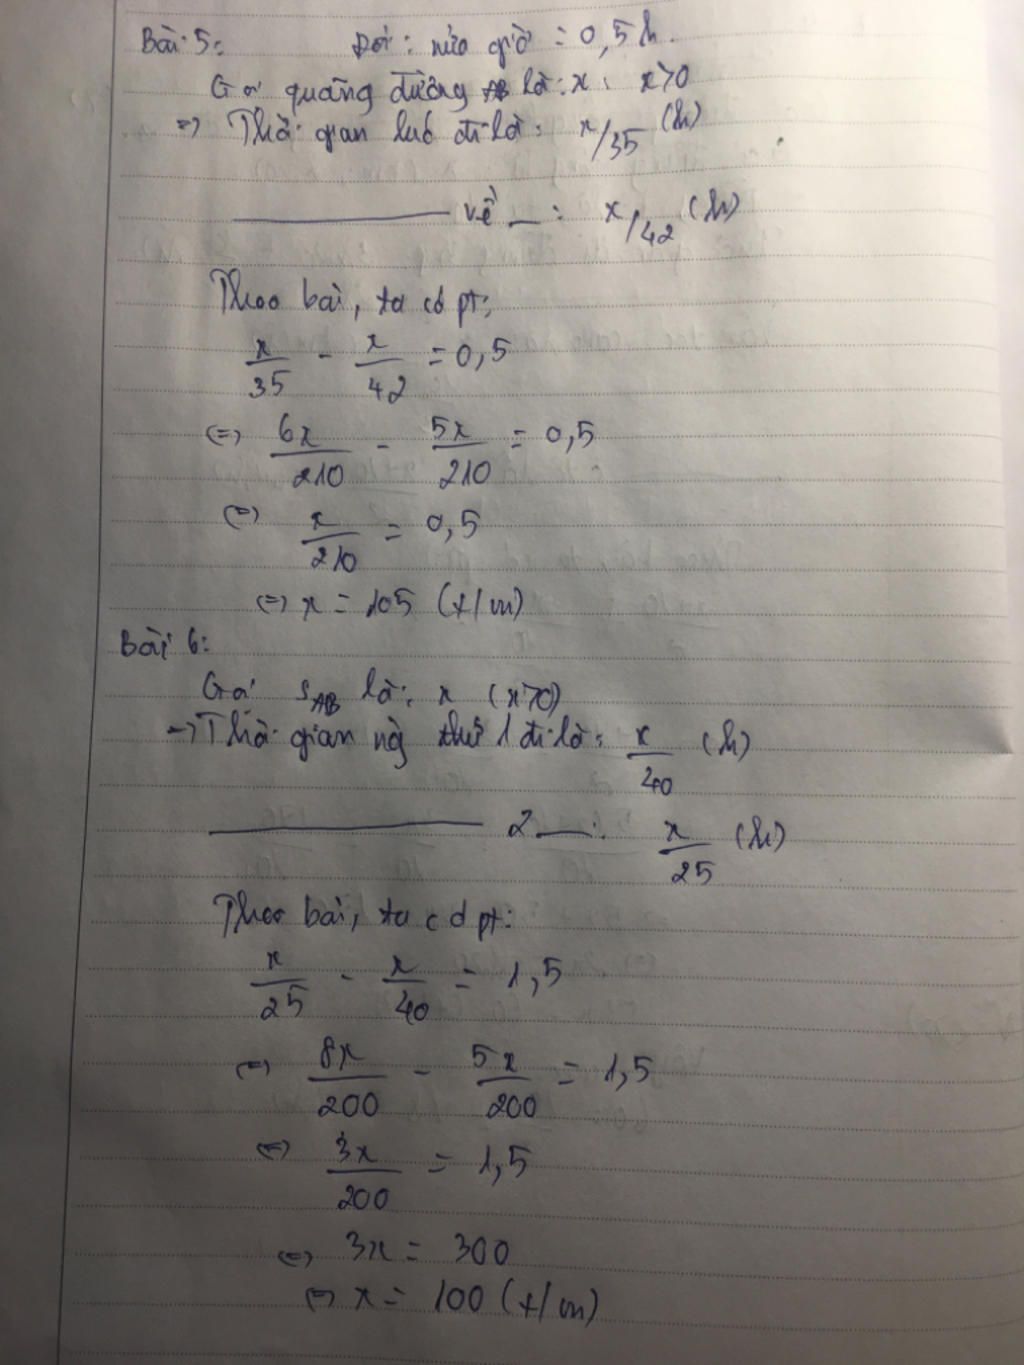 Bài 5: Đổi: nửa giờ = 0,5h.
Gọi quãng đường AB là: x, x>0
=> Thời gian lúc đi là: x/35 (h)
——— về —: x/42 (h)
Theo bài, ta có pt:
x/35 - x/42 = 0,5
<=> 6x/210 - 5x/210 = 0,5
<=> x/210 = 0,5
<=> x = 105 (t/m)
Bài 6:
Gọi SAB là: x (x>0)
=> Thời gian ng thứ 1 đi là: x/40 (h)
——— 2 —: x/25 (h)
Theo bài, ta có pt:
x/25 - x/40 = 1,5
<=> 8x/200 - 5x/200 = 1,5
<=> 3x/200 = 1,5
<=> 3x = 300
<=> x = 100 (t/m)